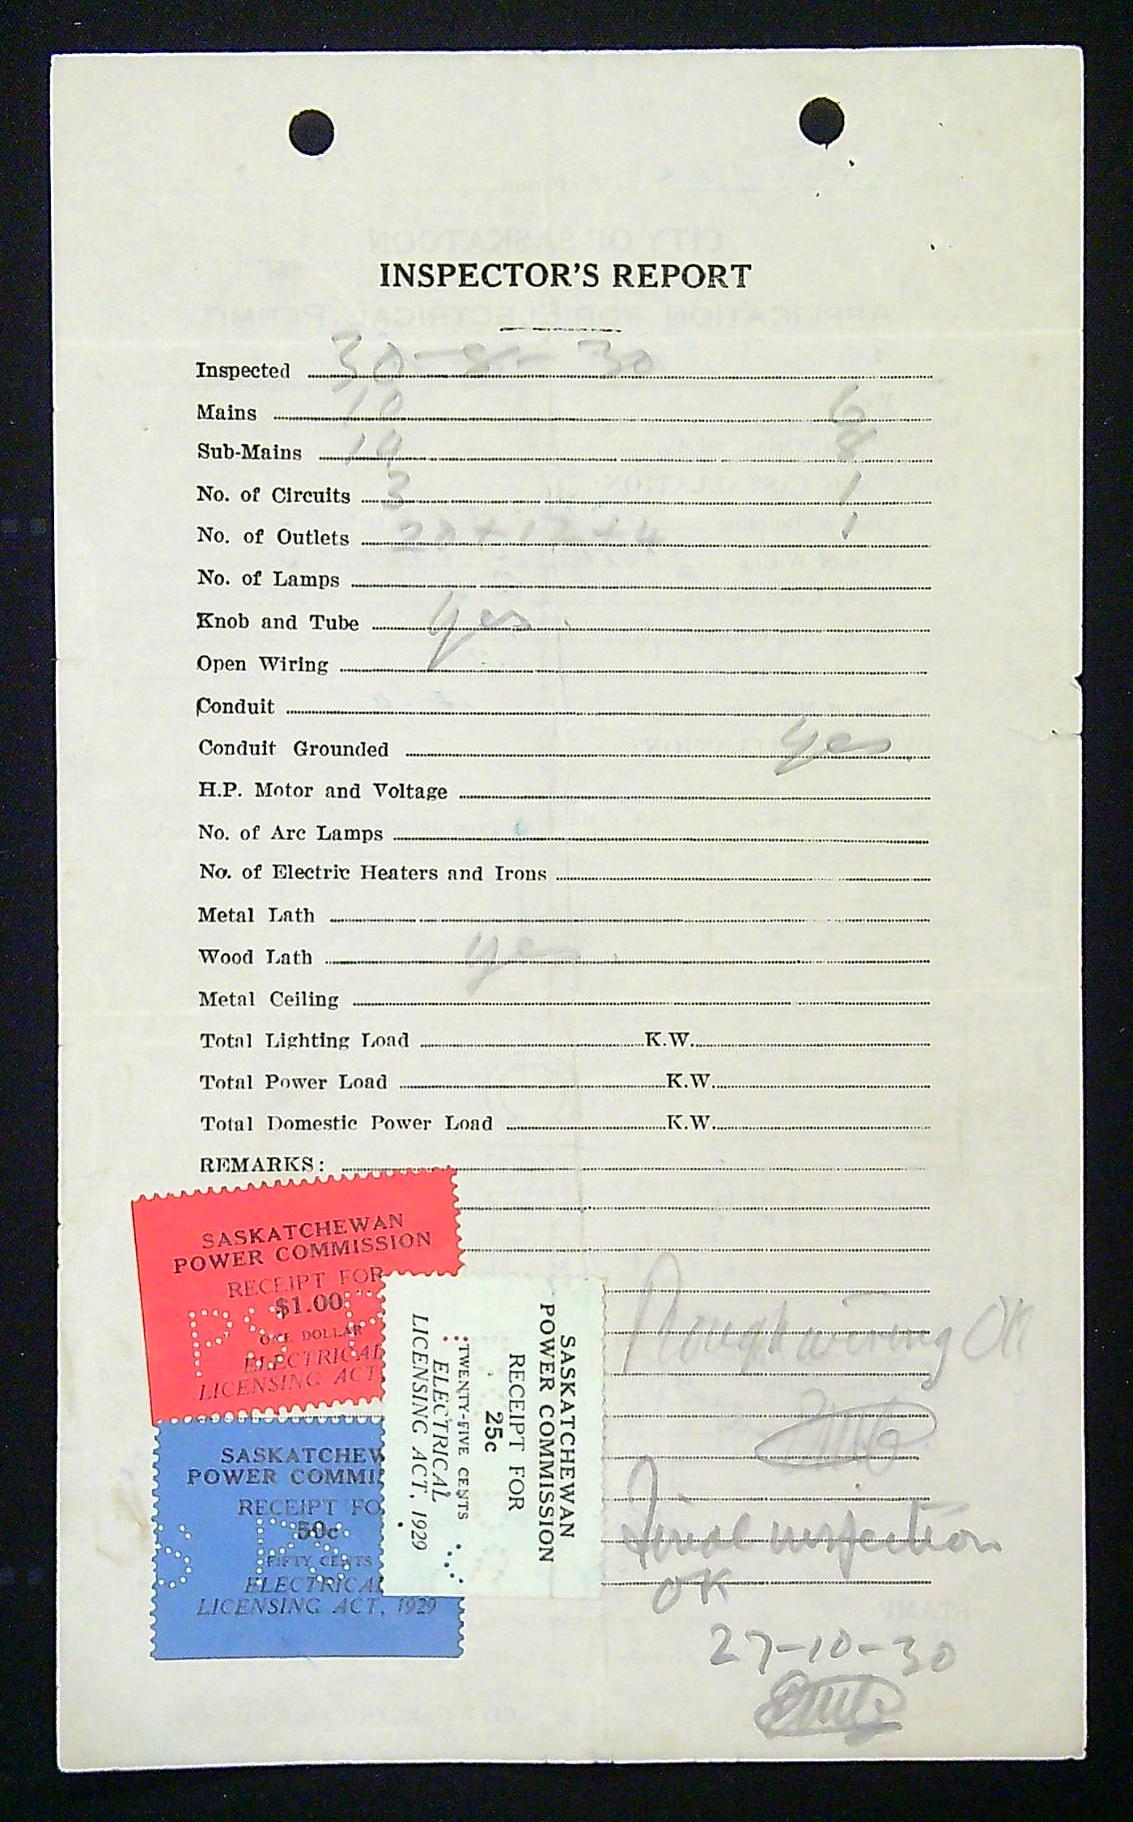 INSPECTOR'S REPORT
Inspected 30-8-30
Mains 10 6
Sub-Mains 14 8
No. of Circuits 3 1
No. of Outlets 28 + 12 + 4 1
No. of Lamps
Knob and Tube yes.
Open Wiring
Conduit
Conduit Grounded yes
H.P. Motor and Voltage
No. of Arc Lamps
No. of Electric Heaters and Irons
Metal Lath
Wood Lath yes.
Metal Ceiling
Total Lighting Load K.W.
Total Power Load K.W.
Total Domestic Power Load K.W.
REMARKS:
SASKATCHEWAN
POWER COMMISSION
RECEIPT FOR
$1.00
ONE DOLLAR
ELECTRICAL
LICENSING ACT
SASKATCHEW
POWER COMMI
RECEIPT FO
50c.
FIFTY CENTS
ELECTRICAL
LICENSING ACT, 1929
SASKATCHEWAN
POWER COMMISSION
RECEIPT FOR
25c
TWENTY-FIVE CENTS
ELECTRICAL
LICENSING ACT, 1929
Rough wiring OK
Final inspection
OK
27-10-30